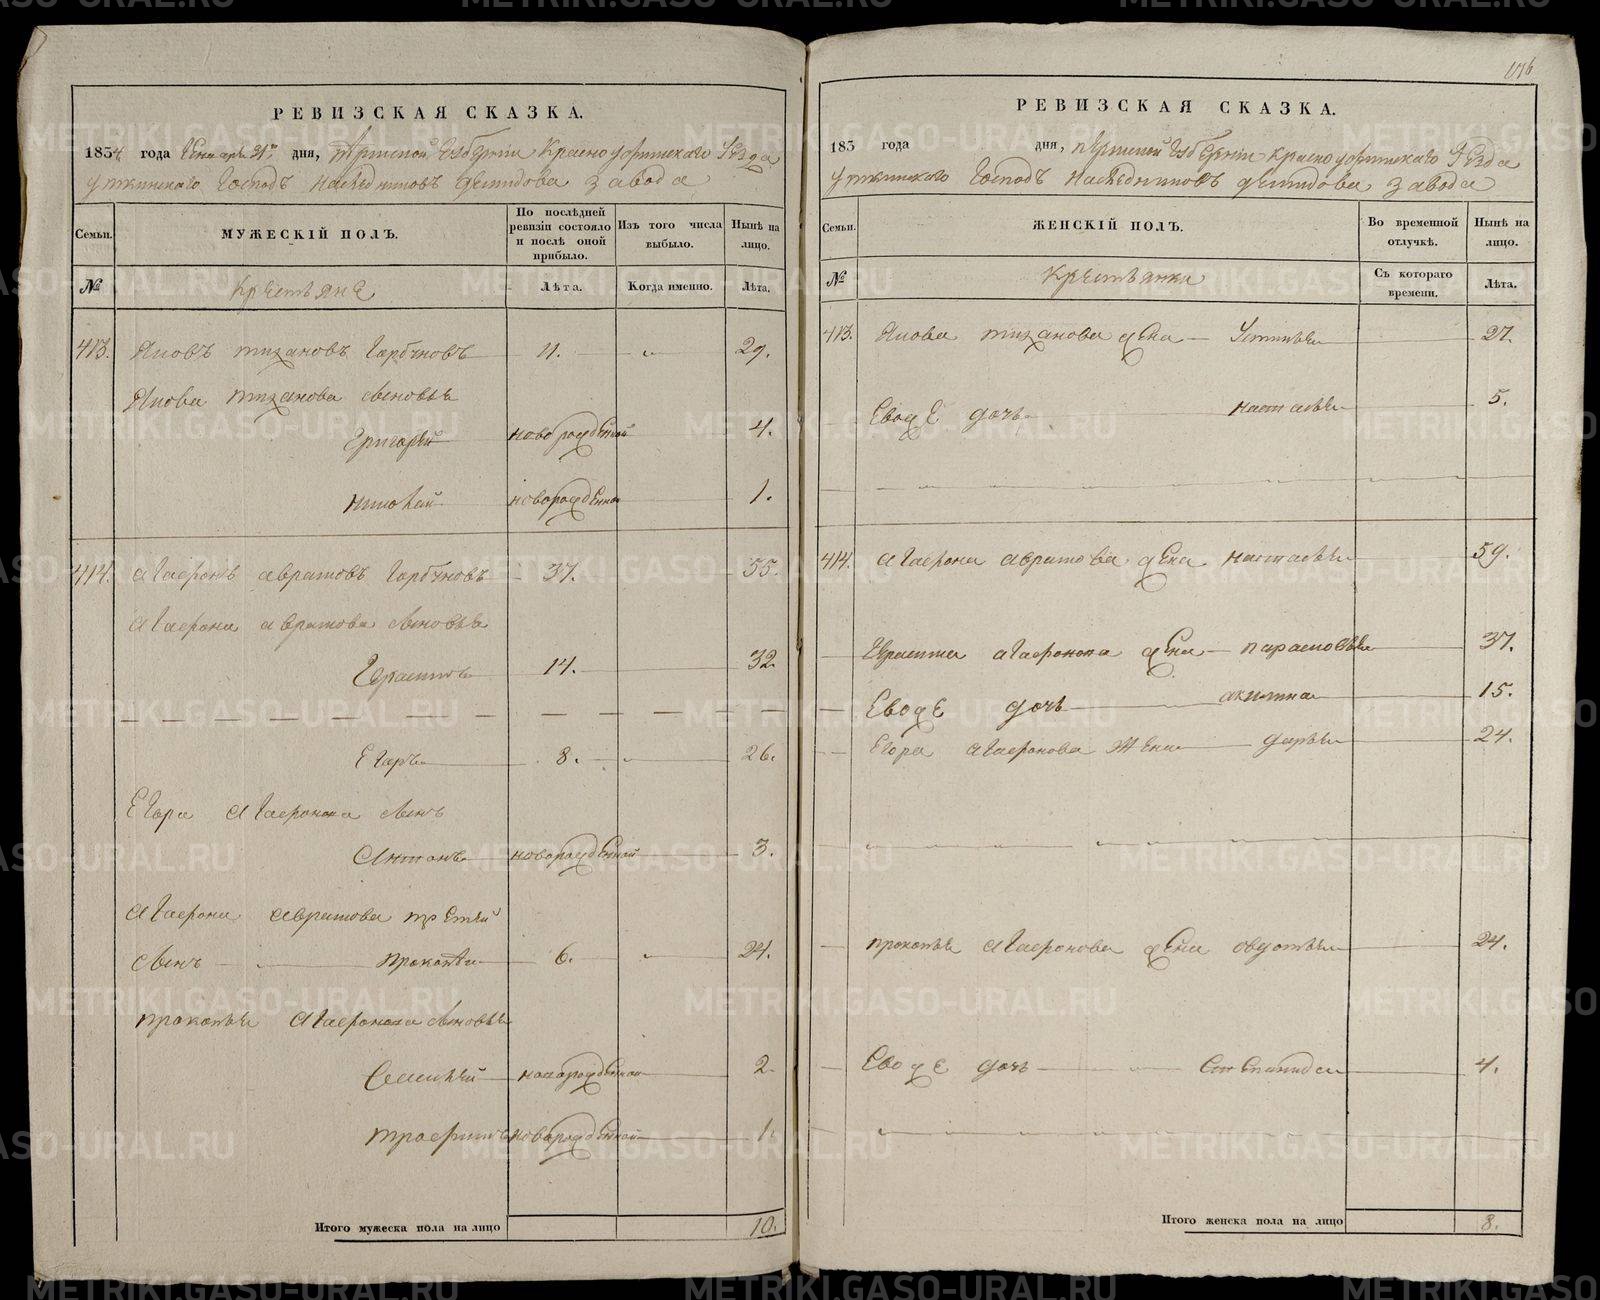 РЕВИЗСКАЯ СКАЗКА.
1834 года Генваря 31го дня, Пермской Губернiи Красноуфимскаго Уезда
Уткинскаго Господъ наследниковъ Демидова завода
Семьи.
МУЖЕСКIЙ ПОЛЪ.
По послѣдней ревизiи состояло и послѣ оной прибыло.
Изъ того числа выбыло.
Нынѣ на лицо.
№
Крестьяне
Лѣта.
Когда именно.
Лѣта.
413. Яковъ Горбуновъ 11. 29.
Якова сыновья
Григорей новорожденой 4.
Николай 1.
414. Агафонъ Аврамовъ Горбуновъ 37. 55.
Агафона Аврамова сыновья
14. 32.
Егоръ 8. 26.
Егора Агафонова сынъ
Антонъ новорожденной 3.
Агафона Аврамова третей
сынъ Прокопей 6. 24.
Прокопья Агафонова сыновья
новорожденной 2.
новорожденной 1.
Итого мужеска пола на лицо 10.
РЕВИЗСКАЯ СКАЗКА.
183 года дня, Пермской Губернiи Красноуфимскаго Уезда
Уткинскаго Господъ наследниковъ Демидова завода
Семьи.
ЖЕНСКIЙ ПОЛЪ.
Во временной отлучкѣ.
Нынѣ на лицо.
№
Крестьянки
Съ котораго времени.
Лѣта.
413. Якова жена Устинья 27.
Евоже дочь Настасья 5.
414. Агафона Аврамова жена Настасья 59.
Агафонова жена Парасковья 37.
Евоже дочь Акилина 15.
Егора Агафонова жена Дарья 24.
Прокопья Агафонова жена Овдотья 24.
Евоже дочь Степанида 4.
Итого женска пола на лицо 8.
METRIKI.GASO-URAL.RU